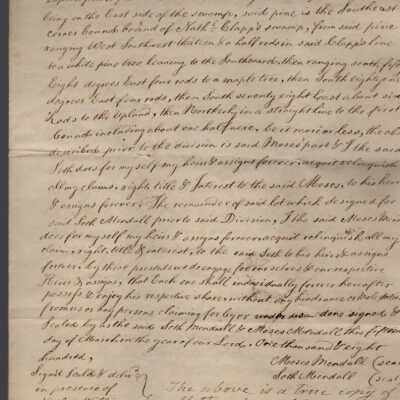 being on the East side of the swamp, said pine is the Southeast
corner bound of Nathl. Clapp's swamp, from said pine
ranging West Southwest thirteen & a half rods in said Clapp's line
to a white pine tree leaning to the Southward, then ranging south fifty
Eight degrees East four rods to a maple tree, then South eighty
degrees East four rods, then South seventy eight East about six
Rods to the Upland, then Northerly in a straight line to the first
bound including about one half acre, be it more or less, the
described prior to the division is said Moses' part & I the said
Seth does for myself my heirs & assigns forever acquit relinquish
all my claims, right, title & Interest to the said Moses, to his heirs
& assigns forever. The remainder of said lot which designed for
said Seth Mendall prior to said Division, I the said Moses
does for myself my heirs & assigns forever acquit relinquish all my
claim, right, title & interest, to the said Seth to his heirs & assigns
forever, by these presents we do engage for ourselves & our respective
Heirs & assigns, that Each one shall individually forever hereafter
possess & enjoy his respective share, without any hindrance or molestation
from us or any persons claiming for by or under us. done signed &
Sealed by us the said Seth Mendall & Moses Mendall this
day of March in the year of our Lord. One thousand & eight
hundred,
Moses Mendall (seal
Signd Seald & delivd
Seth Mendall (seal
in presence of
The above is a true copy of